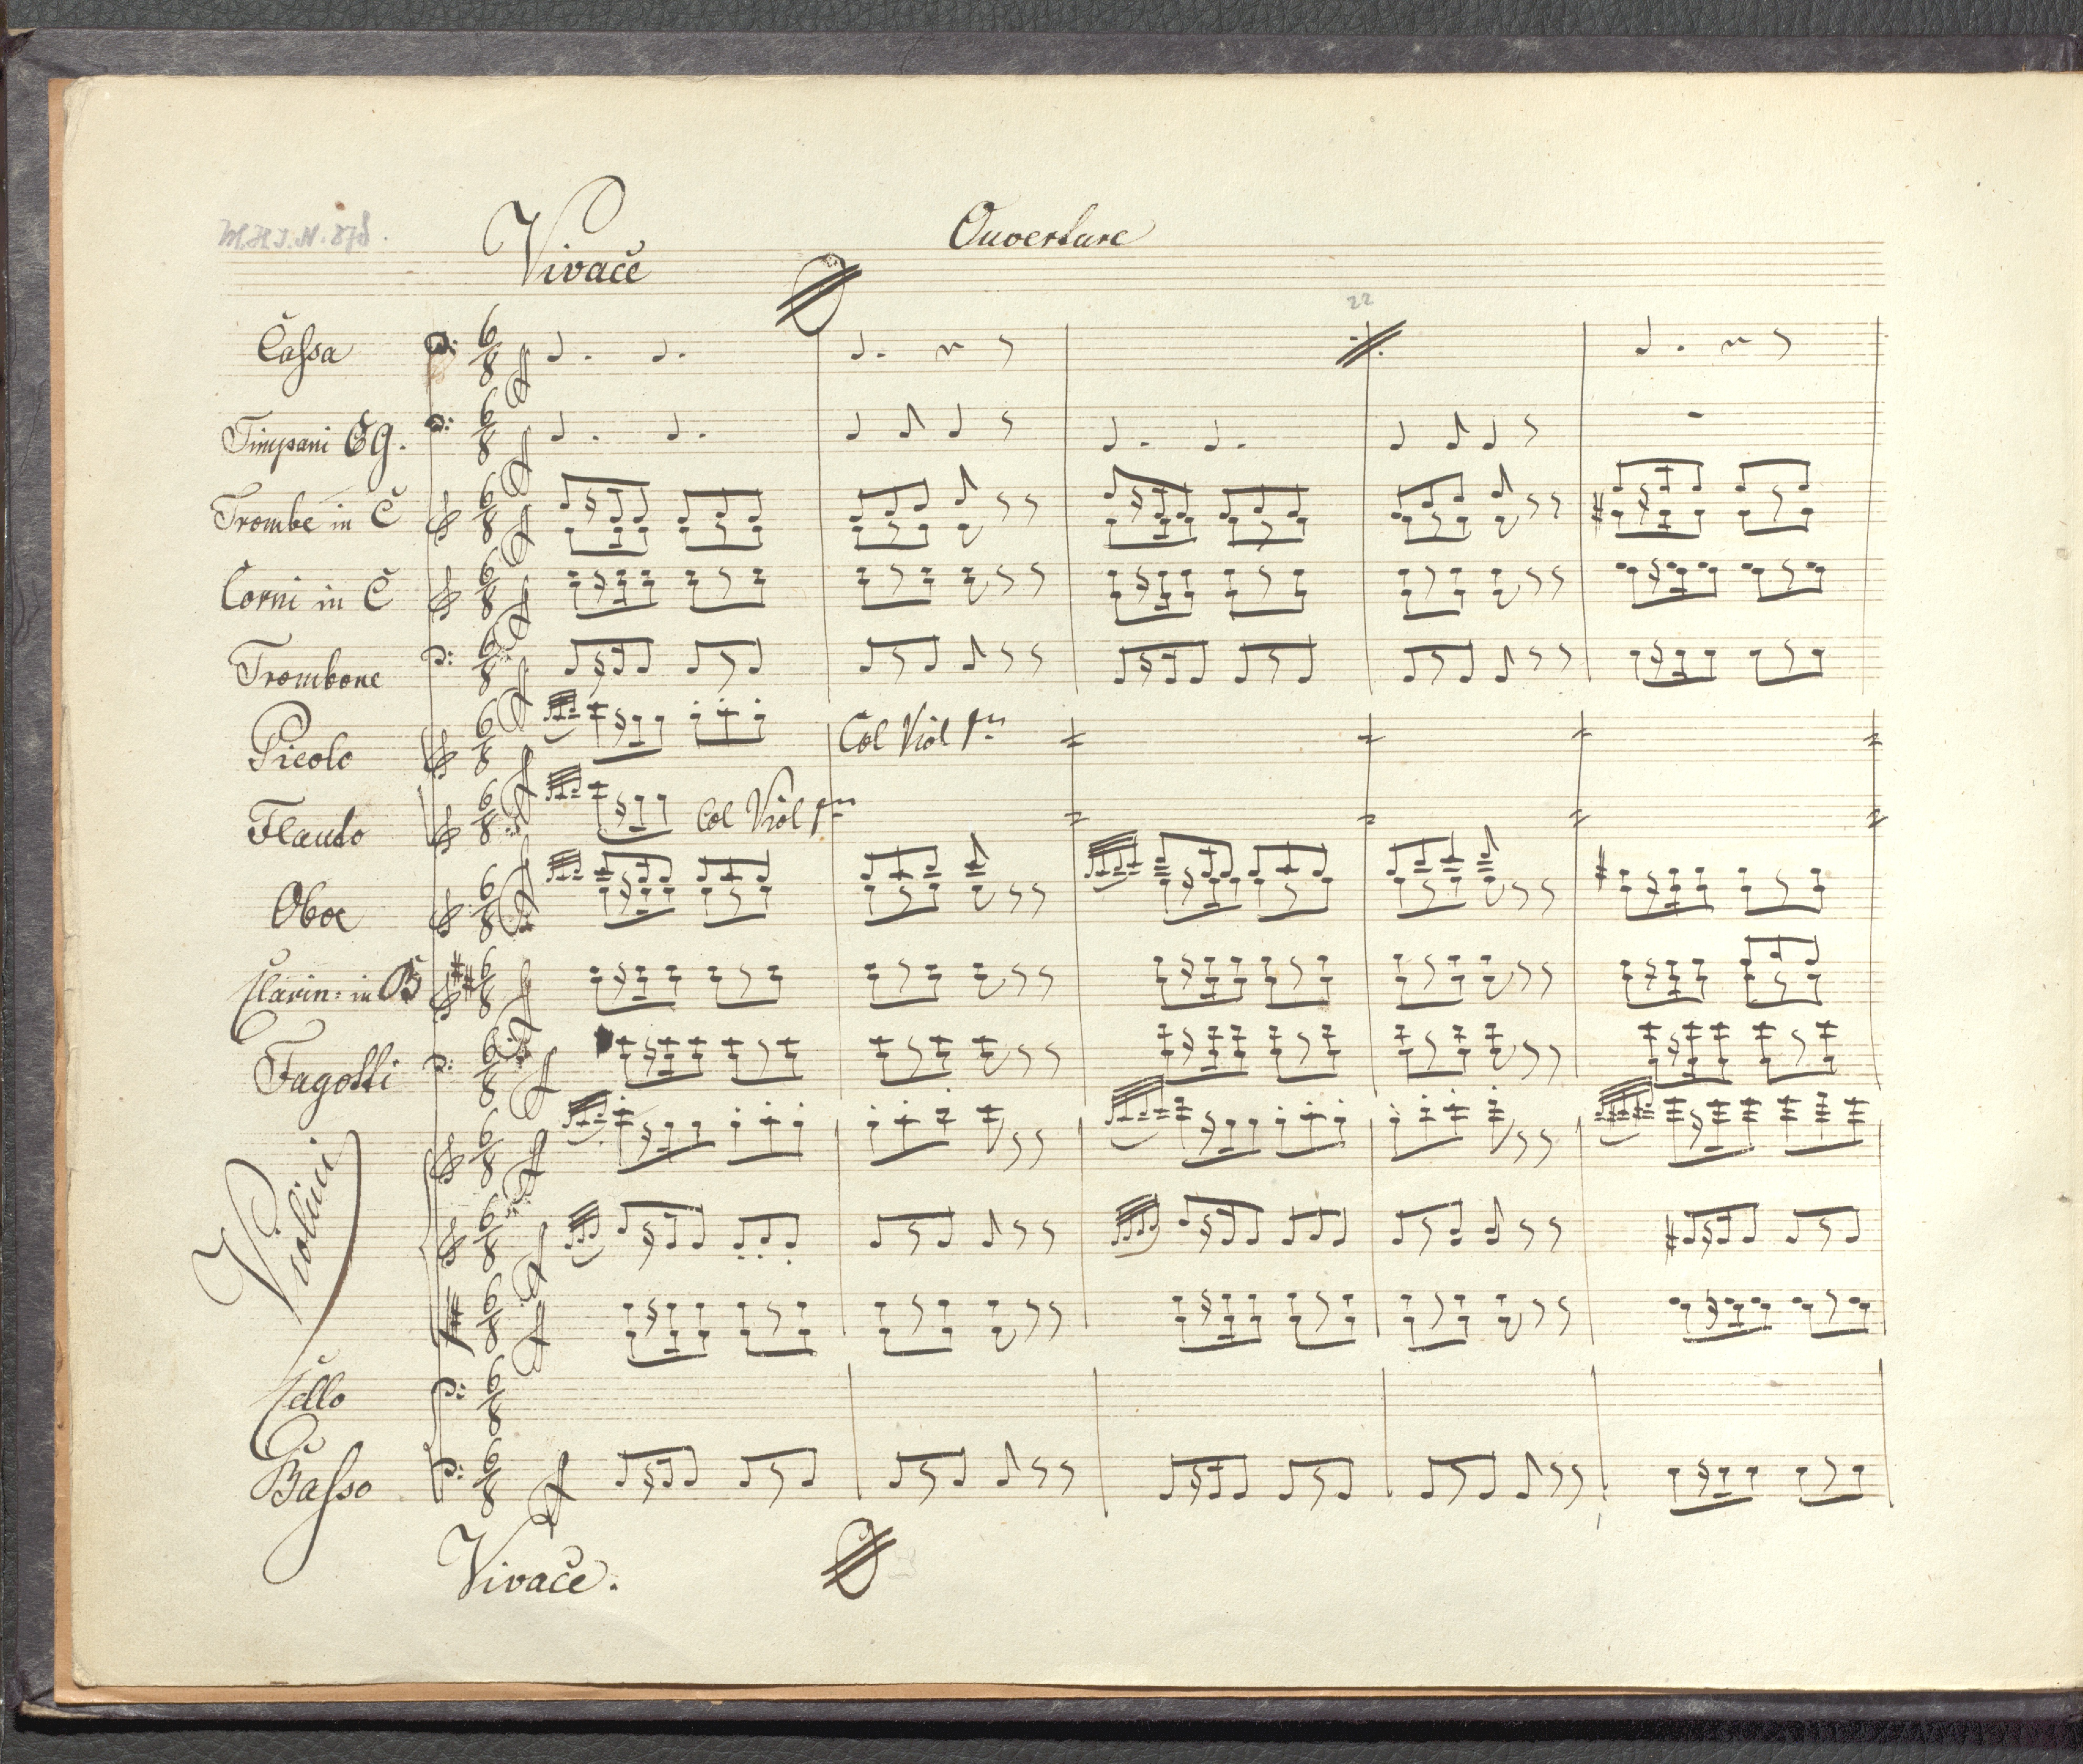 M.H.I.N. 878.
Vivače
Ouverture
22
Caſsa
Timpani C G.
Trombe in C
Corni in C
Trombone
Picolo
Col Viol 1mo
Flauto
Col Viol 1mo
Oboe
Clarin: in B
Fagotti
Violini
Cello
Baſso
Vivače.